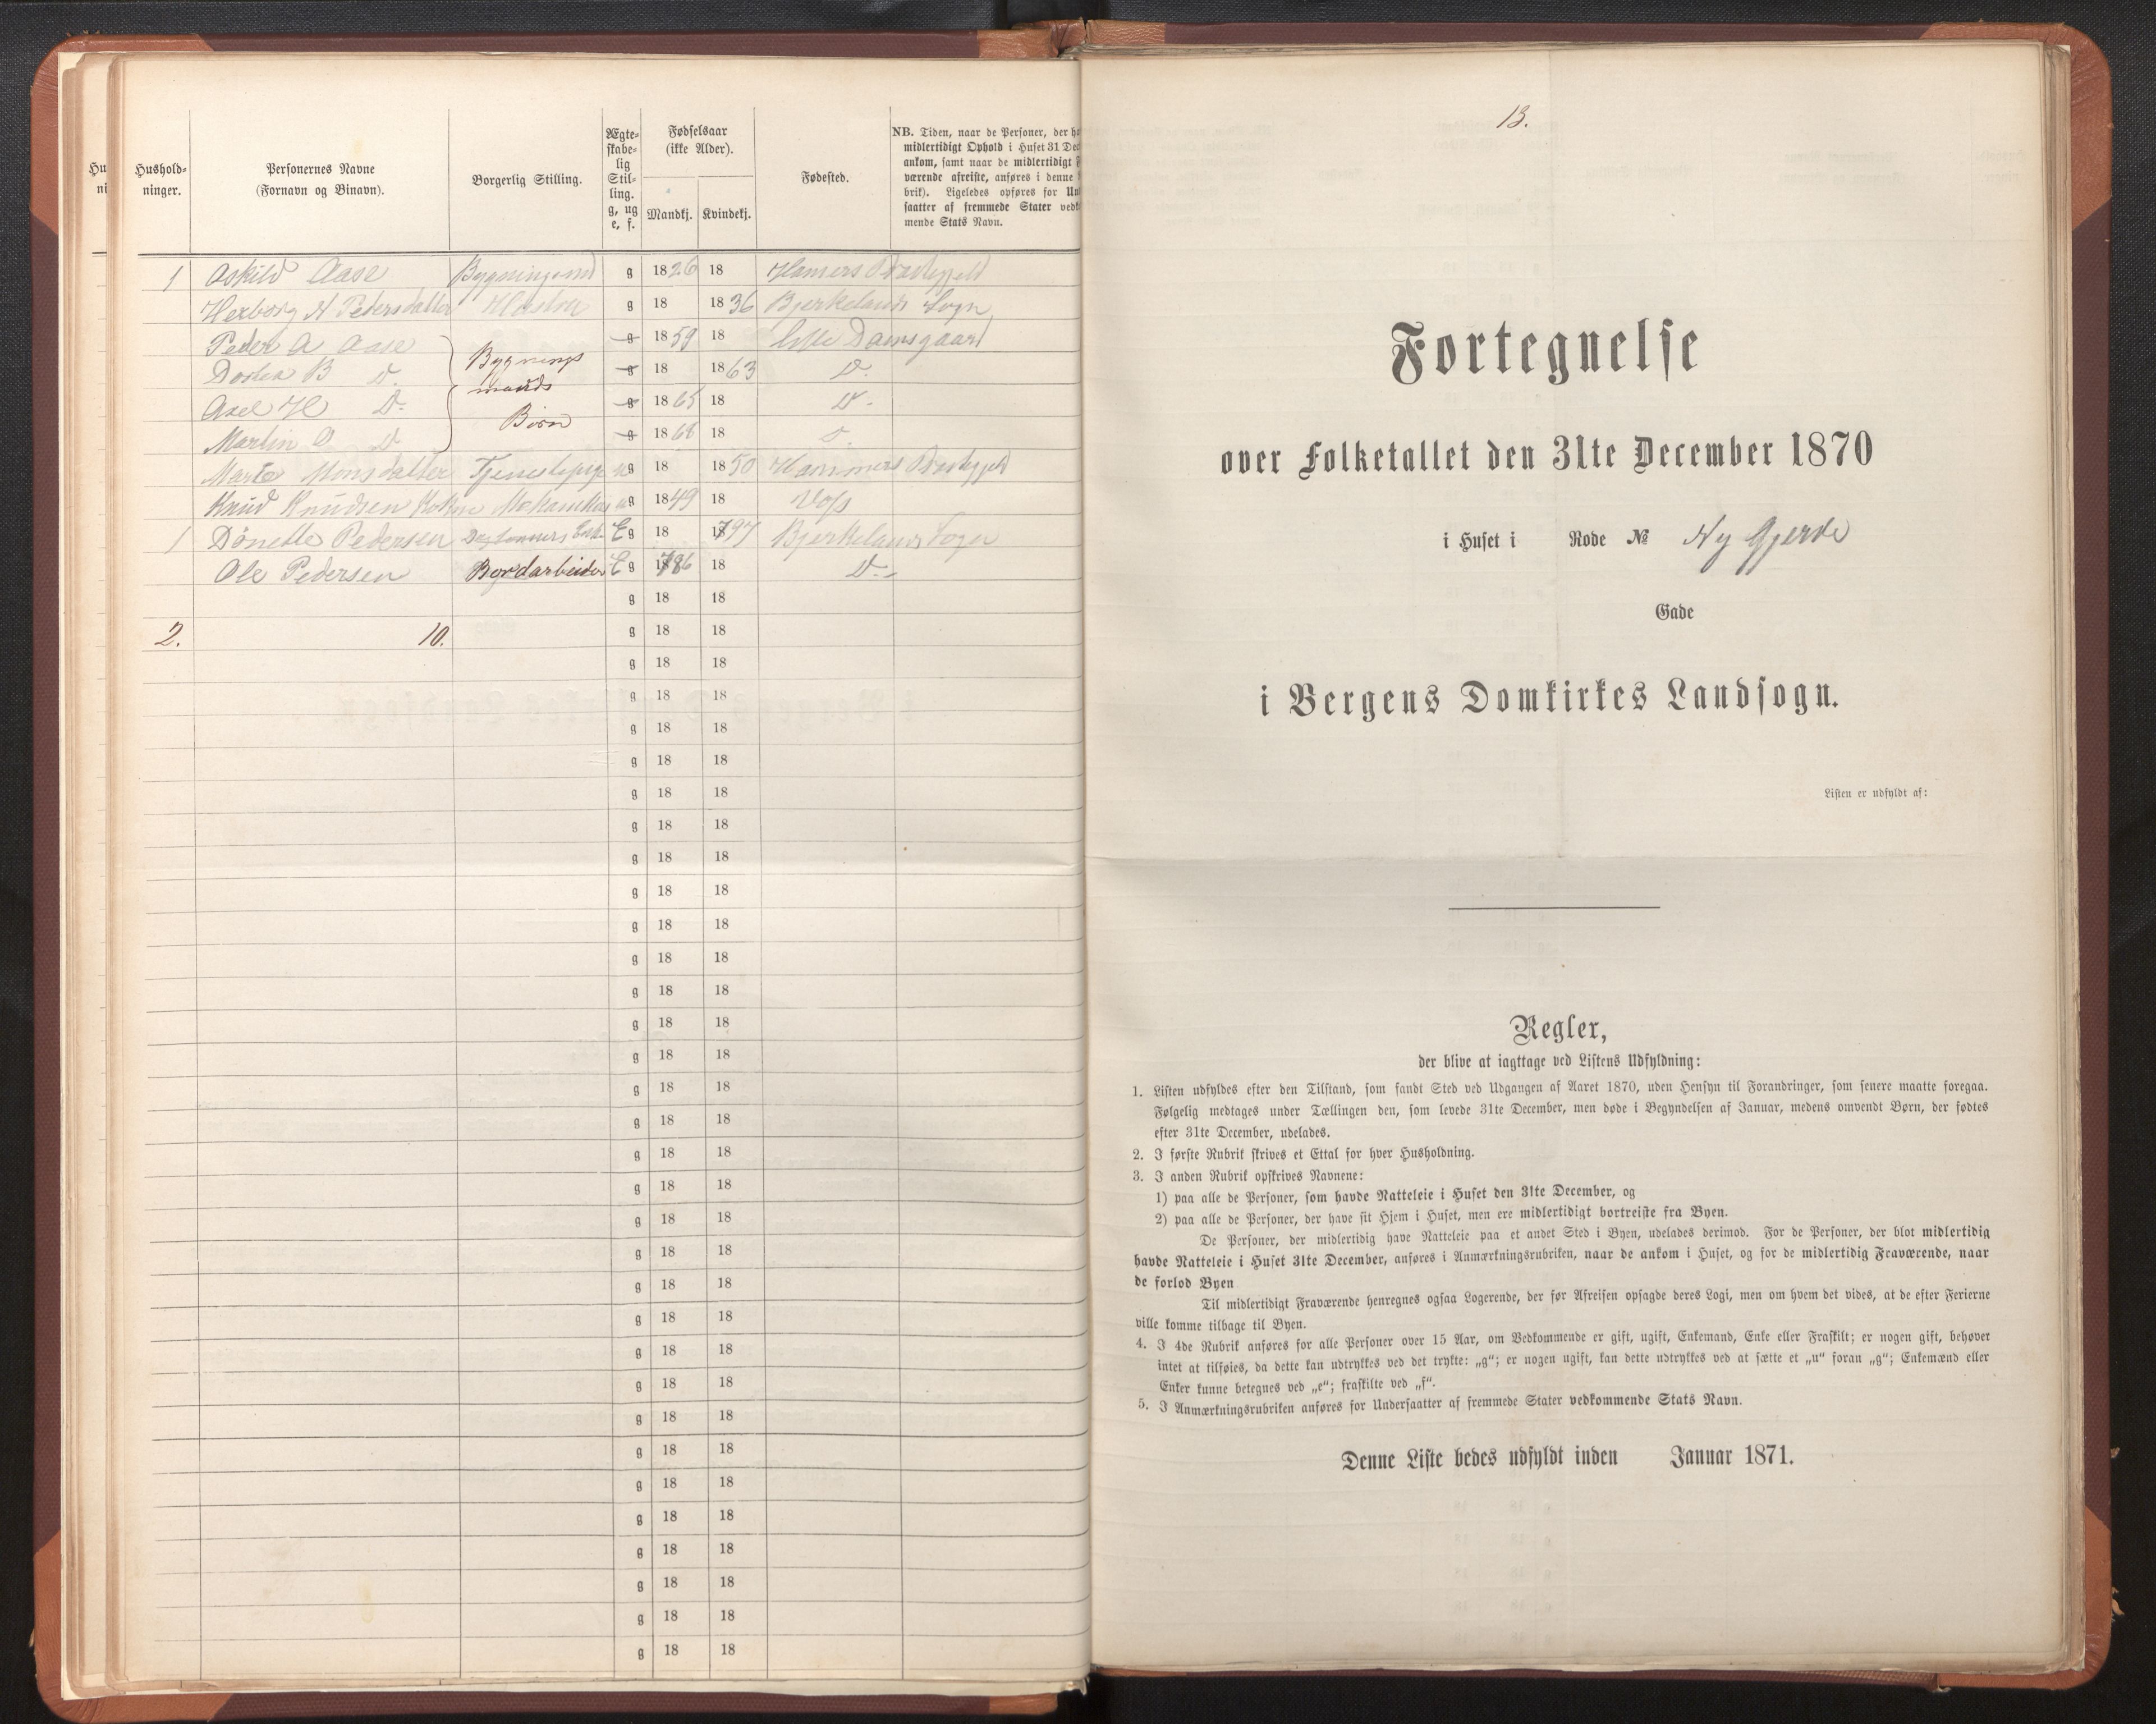 Hu
ni
Hushold-
ninger.
Personernes Navne
(Fornavn og Binavn).
Borgerlig Stilling.
Ægte-
skabe-
lig
Stil-
ling.
g, ug
e, f.
Fødselsaar
(ikke Alder).
Mandkj. Kvindekj.
Fødested.
NB. Tiden, naar de Personer, der h
midlertidigt Ophold i Huset 31 De
ankom, samt naar de midlertidigt F
værende afreiste, anføres i denne
brik). Ligeledes opføres for Un
saatter af fremmede Stater vedk
mende Stats Navn.
1 Askild Aase Bygningsmd g 1826 18 Hamers Præstegjeld
Herborg N Pedersdatter Hustru g 18 1836 Bjerkelands Sogn
Peder A Aase g 1859 18 Lille Damsgaard
B D. Bygnings g 18 1863 D.
Axel H D. mands g 1865 18 D.
Martin O D Børn g 1868 18 D.
Marta Monsdatter Tjenestepige ug 18 1850 Hammers Præstegjeld
Knud Knudsen ug 1849 18 Voss
1 Dönette Pedersen Enke E g 18 1797 Bjerkelands Sogn
Ole Pedersen Bordarbeider E g 1786 18 D.
g 18 18
2. 10. g 18 18
g 18 18
g 18 18
g 18 18
g 18 18
g 18 18
g 18 18
g 18 18
g 18 18
g 18 18
g 18 18
g 18 18
g 18 18
g 18 18
g 18 18
g 18 18
g 18 18
g 18 18
g 18 18
g 18 18
g 18 18
g 18 18
g 18 18
g 18 18
g 18 18
g 18 18
g 18 18
g 18 18
g 18 18
g 18 18
g 18 18
g 18 18
13.
Fortegnelse
over Folketallet den 31te December 1870
i Huset i Rode № Ny Gjerde
Gade
i Bergens Domkirkes Landsogn.
Listen er udfyldt af:
Regler,
der blive at iagttage ved Listens Udfyldning:
1. Listen udfyldes efter den Tilstand, som fandt Sted ved Udgangen af Aaret 1870, uden Hensyn til Forandringer, som senere maatte foregaa.
Følgelig medtages under Tællingen den, som levede 31te December, men døde i Begyndelsen af Januar, medens omvendt Børn, der fødtes
efter 31te December, udelades.
2. I første Rubrik skrives et Ettal for hver Husholdning.
3. I anden Rubrik opskrives Navnene:
1) paa alle de Personer, som havde Natteleie i Huset den 31te December, og
2) paa alle de Personer, der have sit Hjem i Huset, men ere midlertidigt bortreiste fra Byen.
De Personer, der midlertidig have Natteleie paa et andet Sted i Byen, udelades derimod. For de Personer, der blot midlertidig
havde Natteleie i Huset 31te December, anføres i Anmærkningsrubriken, naar de ankom i Huset, og for de midlertidig Fraværende, naar
de forlod Byen
Til midlertidigt Fraværende henregnes ogsaa Logerende, der før Afreisen opsagde deres Logi, men om hvem det vides, at de efter Ferierne
ville komme tilbage til Byen.
4. I 4de Rubrik anføres for alle Personer over 15 Aar, om Vedkommende er gift, ugift, Enkemand, Enke eller Fraskilt; er nogen gift, behøver
intet at tilføies, da dette kan udtrykkes ved det trykte: „g“; er nogen ugift, kan dette udtrykkes ved at sætte et „u“ foran „g“; Enkemænd eller
Enker kunne betegnes ved „e“; fraskilte ved „f“.
5. I Anmærkningsrubriken anføres for Undersaatter af fremmede Stater vedkommende Stats Navn.
Denne Liste bedes udfyldt inden Januar 1871.